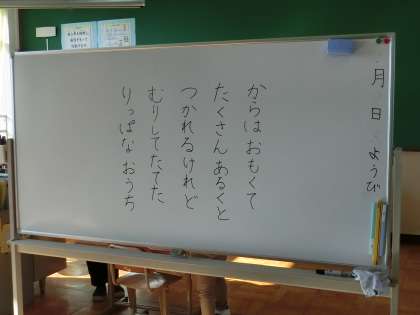 月 日 ようび
からは おもくて
たくさん あるくと
つかれるけれど
むりしてたてた
りっぱな おうち